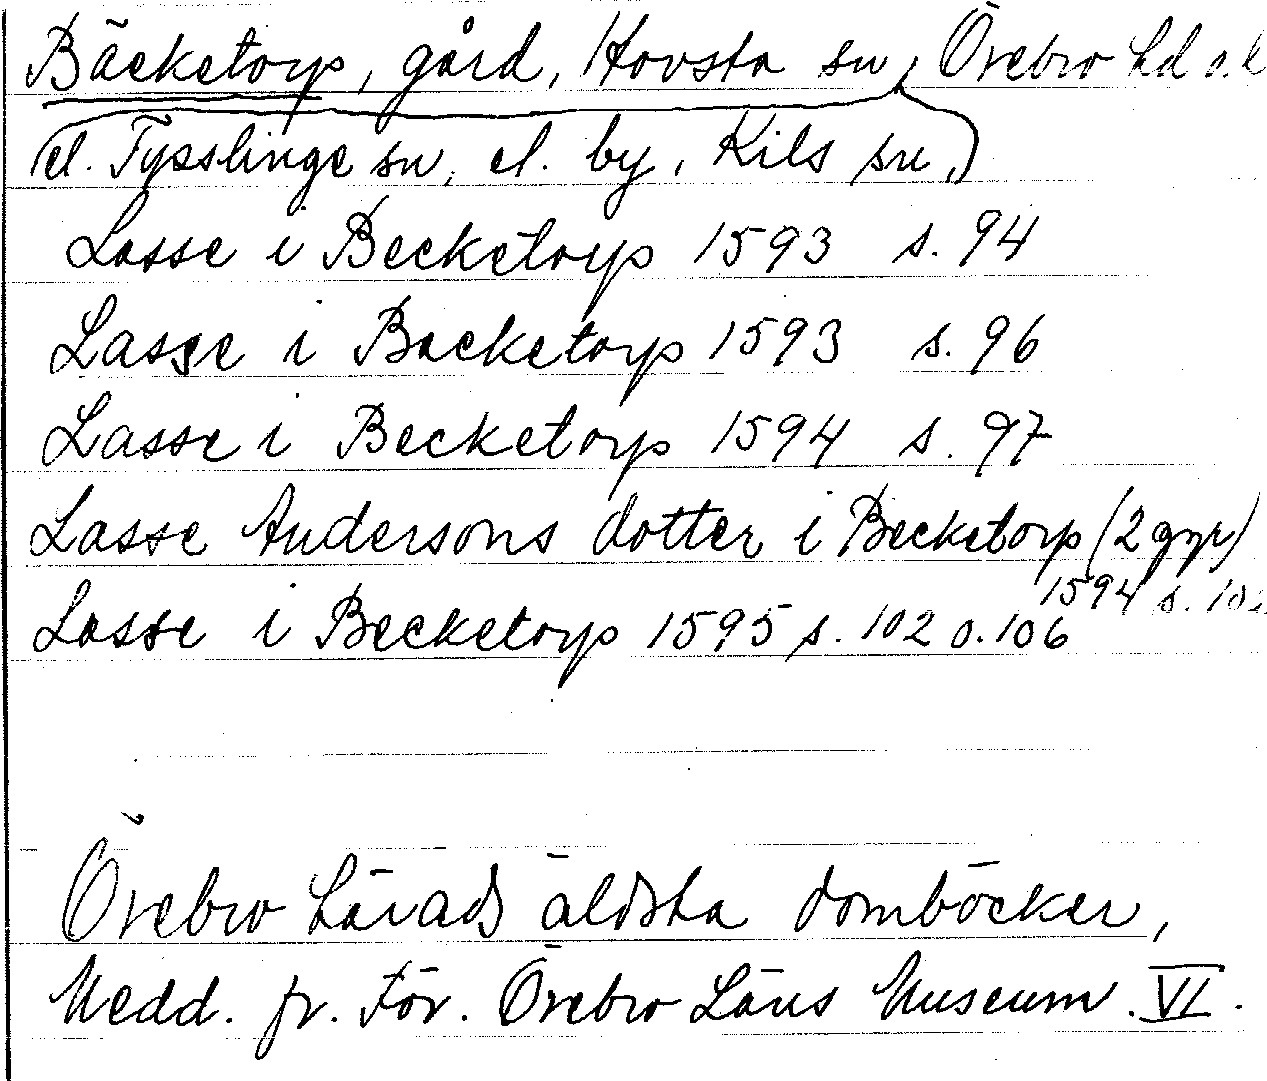 Bäcketorp, gård, Hovsta sn, Örebro hd o. l
(el. Tysslinge sn, el. by, Kils sn,)
Lasse i Becketorp 1593 s. 94
Lasse i Backetorp 1593 s. 96
Lasse i Becketorp 1594 s. 97
Lasse Andersons dotter i Becketorp (2 ggr)
1594 s. 102
Lasse i Becketorp 1595 s. 102 o. 106
Örebro härads äldsta domböcker,
Medd. fr. För. Örebro Läns Museum. VI.